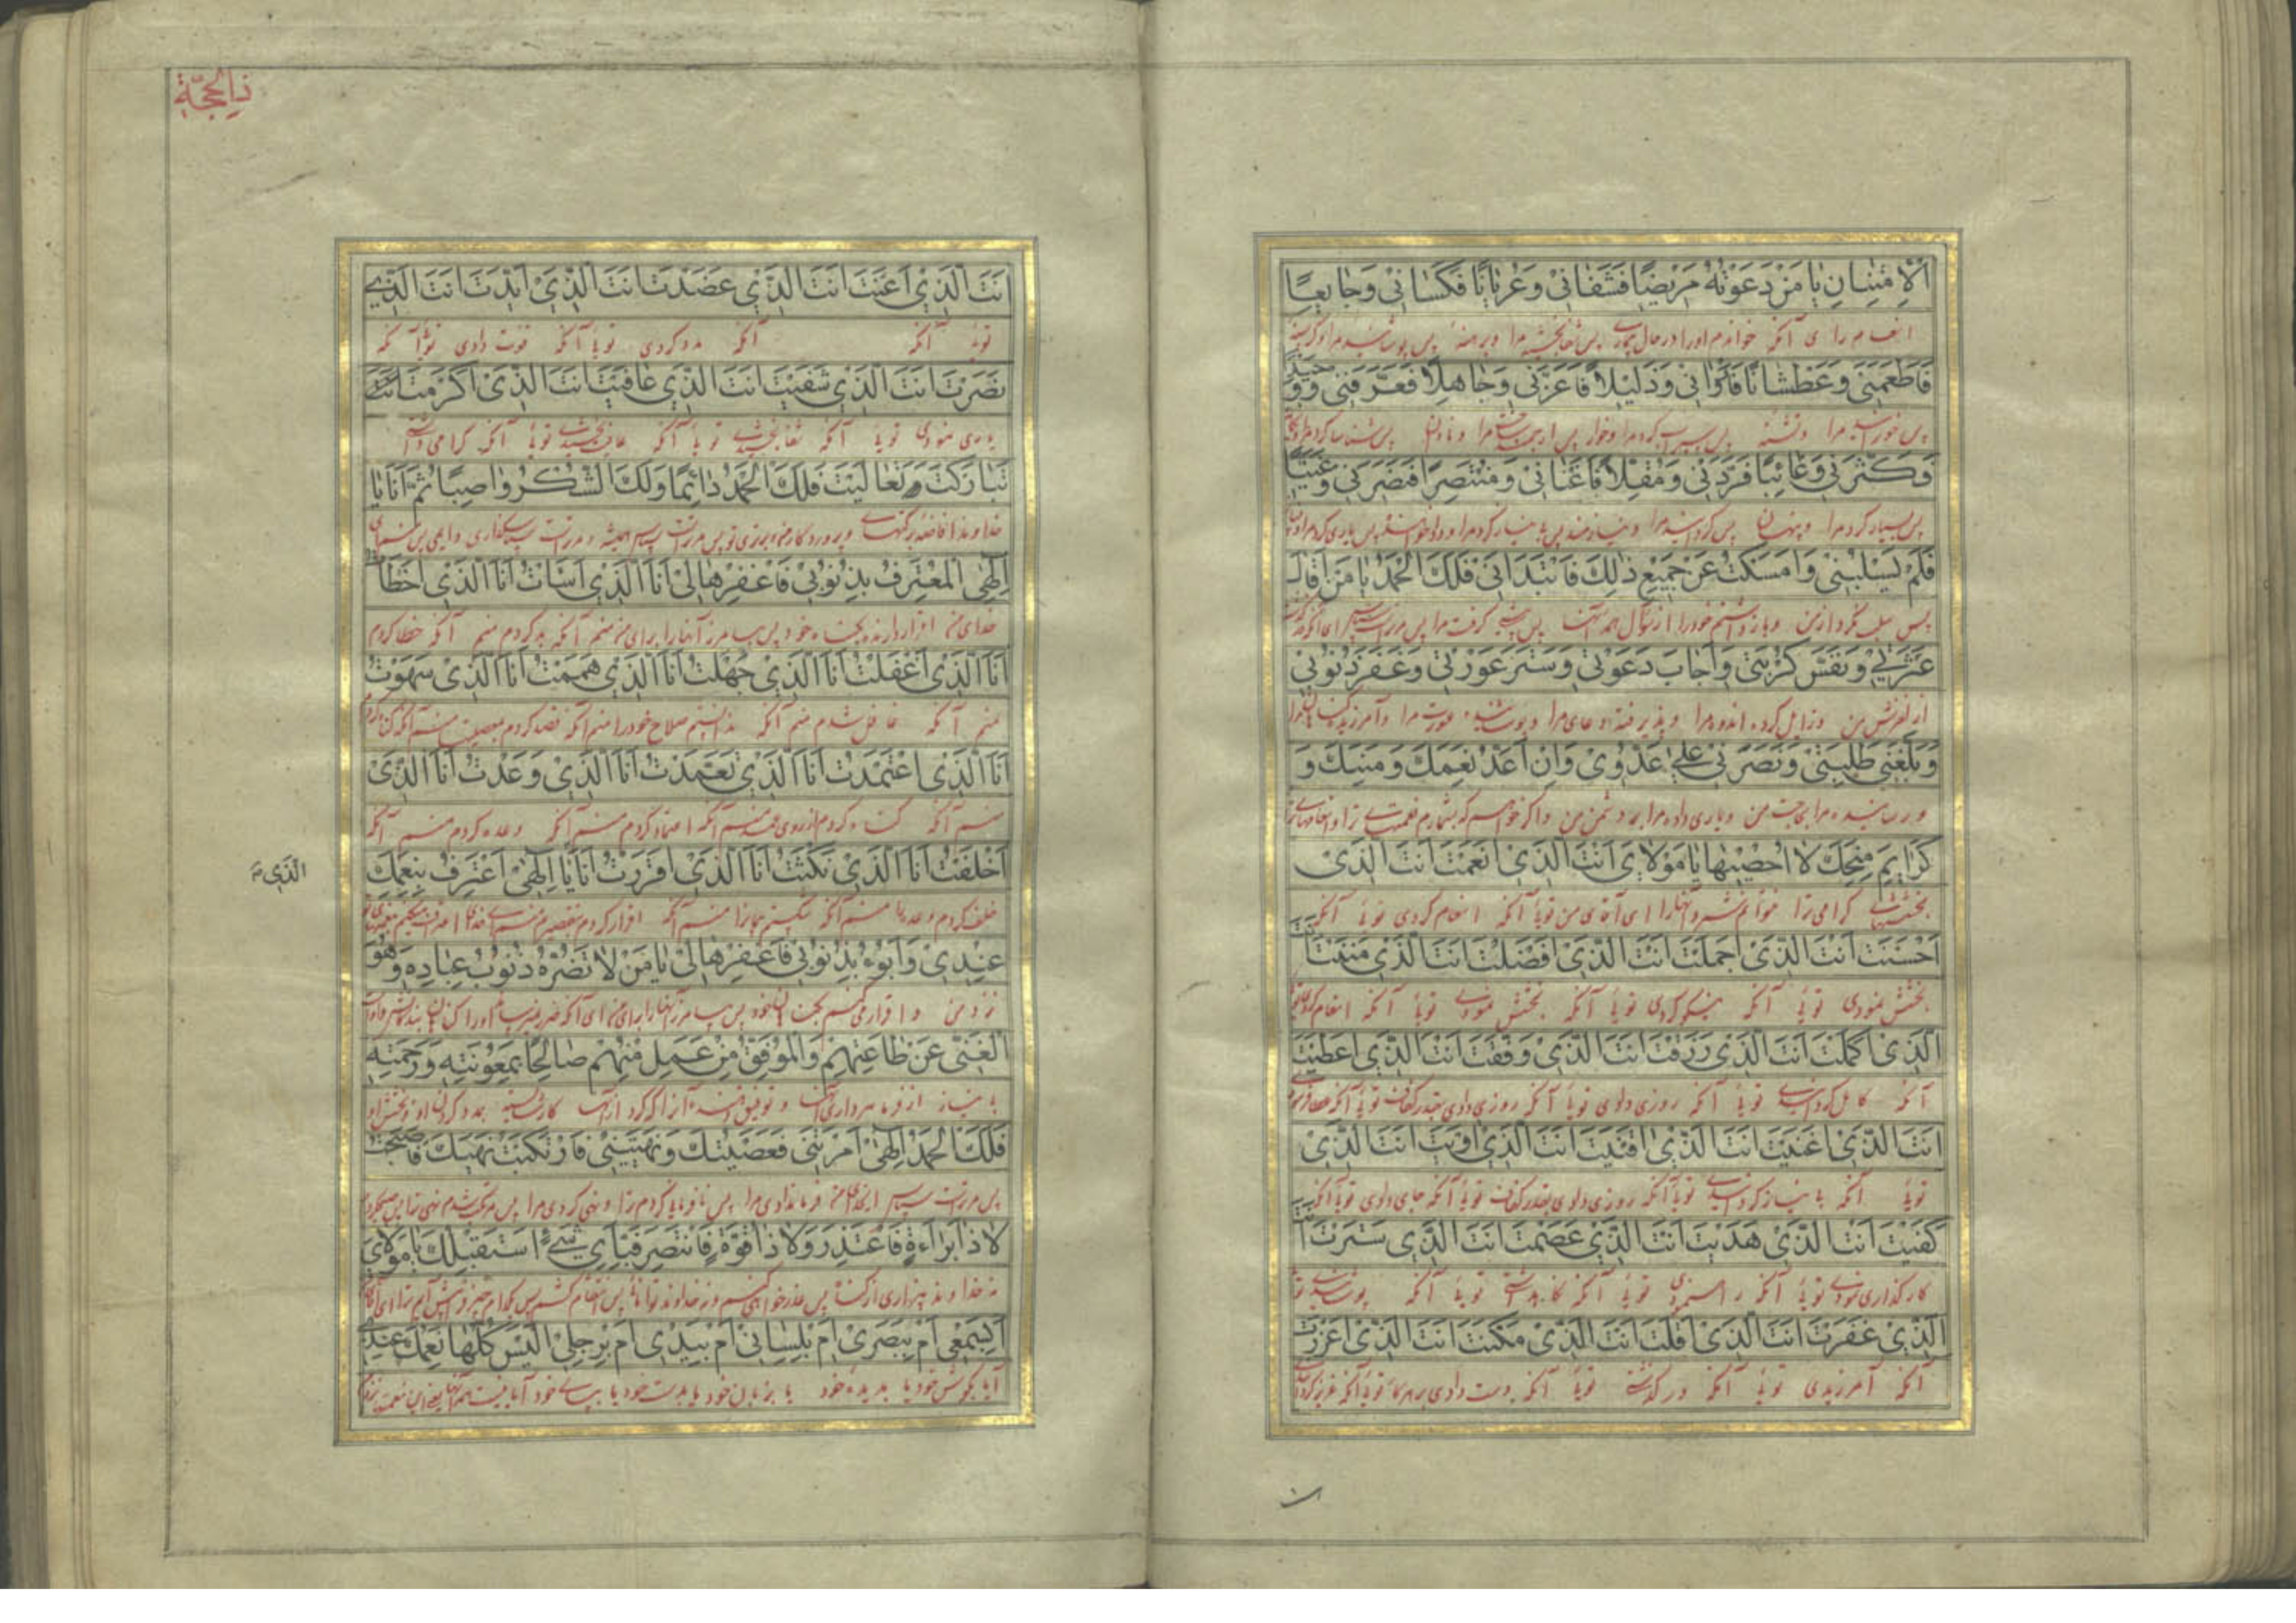 اَلْاِمْتِنانِ یا مَنْ دَعَوْتُهُ مَریضًا فَشَفانی وَعُرْیانًا فَکَسانی وَجایِعًا
انعام را ی آنکه خواندم اورا در حال بیماری پس شفا بخشید مرا وبرهنه پس پوشانید مرا وکرسنه
فَاَطْعَمَنی وَعَطْشانًا فَاَرْوانی وَذَلیلاً فَاَعَزَّنی وَجاهِلاً فَعَرَّفَنی وَوَحیدًا
پس خورانید مرا وتشنه پس سیراب کرد مرا وخوار پس ارجمند ساخت مرا ونادان پس شناسا کرد مرا
فَکَثَّرَنی وَغائِبًا فَرَدَّنی وَمُقِلاًّ فَاَغْنانی وَمُنْتَصِرًا فَنَصَرَنی وَغَنِیًّا
پس بسیار کرد مرا وپنهان پس کردانید مرا ونیازمند پس بی نیاز کرد مرا ودادخواهنده پس یاری کرد مرا
فَلَمْ یَسْلُبْنی وَاَمْسَکْتُ عَنْ جَمیعِ ذٰلِکَ فَابْتَدَاَنی فَلَکَ الْحَمْدُ یا مَنْ اَقالَ
پس سلب نکرد از من وباز داشتم خودرا از سؤال همه اینها پس پیشی کرفت مرا پس مرتراست سپاس ای آنکه
عَثْرَتی وَنَفَّسَ کُرْبَتی وَاَجابَ دَعْوَتی وَسَتَرَ عَوْرَتی وَغَفَرَ ذُنُوبی
از لغزش من وزایل کرده اندوه مرا وپذیرفته دعای مرا وپوشیده عورت مرا وآمرزیده
وَبَلَّغَنی طَلِبَتی وَنَصَرَنی عَلیٰ عَدُوّی وَاِنْ اَعُدَّ نِعَمَکَ وَمِنَنَکَ وَ
ورسانیده مرا بحاجت من ویاری داده مرا بر دشمن من واکر خواهم که بشمارم نعمتهای ترا
کَرایِمَ مِنَحِکَ لا اُحْصیها یا مَوْلایَ اَنْتَ الَّذی اَنْعَمْتَ اَنْتَ الَّذی
بخششهای کرامی ترا نتوانم شمرد آنهارا ای آقای من توئی آنکه انعام کردی توئی آنکه
اَحْسَنْتَ اَنْتَ الَّذی اَجْمَلْتَ اَنْتَ الَّذی اَفْضَلْتَ اَنْتَ الَّذی مَنَنْتَ اَنْتَ
بخشش نمودی توئی آنکه نیکو کردی توئی آنکه بخشش نمودی توئی آنکه انعام کردی
الَّذی اَکْمَلْتَ اَنْتَ الَّذی رَزَقْتَ اَنْتَ الَّذی وَفَّقْتَ اَنْتَ الَّذی اَعْطَیْتَ
آنکه کامل کردانیدی توئی آنکه روزی دادی توئی آنکه روزی دادی بقدر کفاف توئی آنکه عطا فرمودی
اَنْتَ الَّذی اَغْنَیْتَ اَنْتَ الَّذی اَقْنَیْتَ اَنْتَ الَّذی اوَیْتَ اَنْتَ الَّذی
توئی آنکه بی نیاز کردانیدی توئی آنکه روزی دادی بقدر کفاف توئی آنکه جای دادی توئی آنکه
کَفَیْتَ اَنْتَ الَّذی هَدَیْتَ اَنْتَ الَّذی عَصَمْتَ اَنْتَ الَّذی سَتَرْتَ اَنْتَ
کارگذاری نمودی توئی آنکه راه نمودی توئی آنکه نکاهداشتی توئی آنکه پوشانیدی
الَّذی غَفَرْتَ اَنْتَ الَّذی اَقَلْتَ اَنْتَ الَّذی مَکَّنْتَ اَنْتَ الَّذی اَعْزَزْتَ
آنکه آمرزیدی توئی آنکه درگذشتی توئی آنکه دست دادی توئی آنکه عزیز کردی
انت
ذی الحجّة
اَنْتَ الَّذی اَعَنْتَ اَنْتَ الَّذی عَضَدْتَ اَنْتَ الَّذی اَیَّدْتَ اَنْتَ الَّذی
توئی آنکه آنکه مدد کردی توئی آنکه قوت دادی توئی آنکه
نَصَرْتَ اَنْتَ الَّذی شَفَیْتَ اَنْتَ الَّذی عافَیْتَ اَنْتَ الَّذی اَکْرَمْتَ اَنْتَ
یاری نمودی توئی آنکه شفا بخشیدی توئی آنکه عافیت بخشیدی توئی آنکه کرامی داشتی
تَبارَکْتَ وَتَعالَیْتَ فَلَکَ الْحَمْدُ دائِمًا وَلَکَ الشُّکْرُ واصِبًا ثُمَّ اَنَا یا
پس مرتراست سپاس همیشه ومرتراست سپاسگذاری دایمی پس منم ای
اِلٰهی الْمُعْتَرِفُ بِذُنُوبی فَاغْفِرْها لی اَنَا الَّذی اَسَاْتُ اَنَا الَّذی اَخْطَاْتُ
خدای من اقرار دارنده بکناه خود پس بیامرز آنهارا برای من منم آنکه بد کردم منم آنکه خطا کردم
اَنَا الَّذی اَغْفَلْتُ اَنَا الَّذی جَهِلْتُ اَنَا الَّذی هَمَمْتُ اَنَا الَّذی سَهَوْتُ
منم آنکه غافل شدم منم آنکه ندانستم صلاح خودرا منم آنکه قصد کردم معصیت منم آنکه
اَنَا الَّذی اعْتَمَدْتُ اَنَا الَّذی تَعَمَّدْتُ اَنَا الَّذی وَعَدْتُ اَنَا الَّذی
منم آنکه کناه کردم از روی عمد منم آنکه اعتماد کردم منم آنکه وعده کردم منم آنکه
اَخْلَفْتُ اَنَا الَّذی نَکَثْتُ اَنَا الَّذی اَقْرَرْتُ اَنَا یا اِلٰهی اَعْتَرِفُ بِنِعَمِکَ
الَّذی
خلف کردم وعده را منم آنکه شکستم پیمانرا منم آنکه اقرار کردم بتقصیر
عِنْدی وَاَبُوءُ بِذُنُوبی فَاغْفِرْها لی یا مَنْ لا تَضُرُّهُ ذُنُوبُ عِبادِهِ وَهُوَ
نزد من واقرار میکنم بکناهان خود پس بیامرز آنهارا برای من ای آنکه ضرر نمیرساند اورا کناهان
الْغَنِیُّ عَنْ طاعَتِهِمْ وَالْمُوَفِّقُ مَنْ عَمِلَ مِنْهُمْ صالِحًا بِمَعُونَتِهِ وَرَحْمَتِهِ
بی نیاز از فرمانبرداری آنها وتوفیق دهنده آنرا که کرد از آنها کار شایسته
فَلَکَ الْحَمْدُ اِلٰهی اَمَرْتَنی فَعَصَیْتُکَ وَنَهَیْتَنی فَارْتَکَبْتُ نَهْیَکَ فَاَصْبَحْتُ
پس مرتراست سپاس ای خدای من فرمان دادی مرا پس نافرمانی کردم ترا ونهی کردی مرا پس مرتکب شدم نهی ترا
لا ذا بَراءَةٍ فَاَعْتَذِرَ وَلا ذا قُوَّةٍ فَاَنْتَصِرَ فَبِاَیِّ شَیْءٍ اَسْتَقْبِلُکَ یا مَوْلایَ
نه خداوند بیزاری از کناه پس عذر خواهی کنم ونه خداوند توانائی پس انتقام کشم پس بکدام چیز
اَبِسَمْعی اَمْ بِبَصَری اَمْ بِلِسانی اَمْ بِیَدی اَمْ بِرِجْلی اَلَیْسَ کُلُّها نِعَمَکَ عِنْدی
آیا بکوش خود یا بدیده خود یا بزبان خود یا بدست خود یا بپای خود آیا نیست